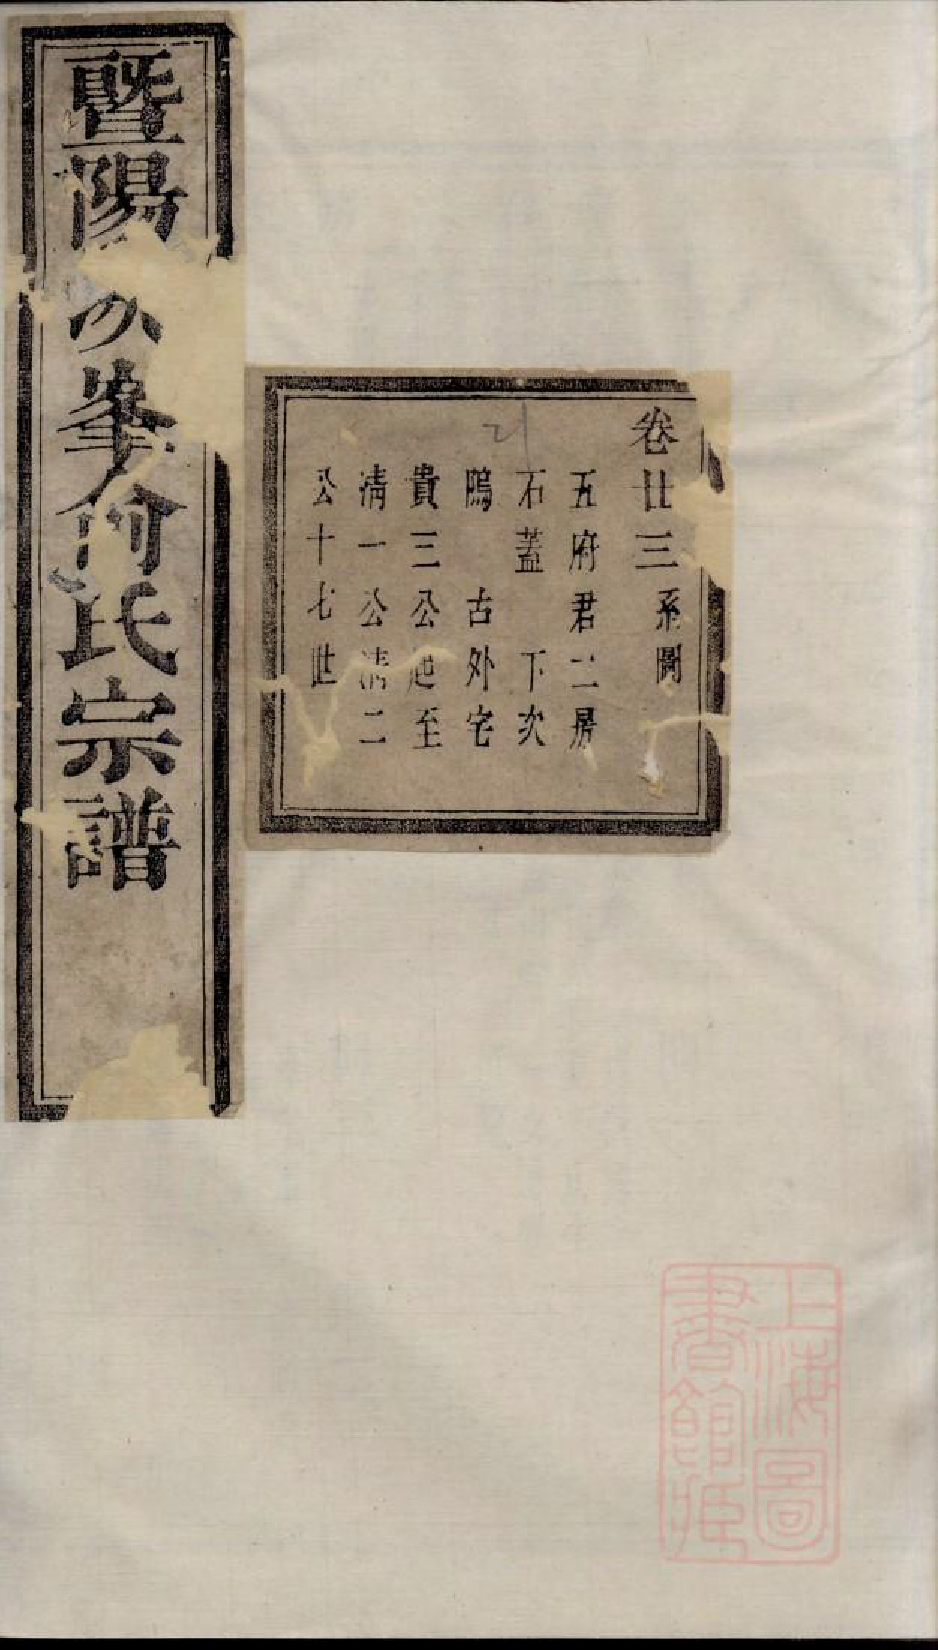 暨陽次峯俞氏宗譜
卷廿三系圖
五府君二房
石蓋 下次
隖 古外宅
貴三公至
清一公清二
公十七世
上海圖
書館藏